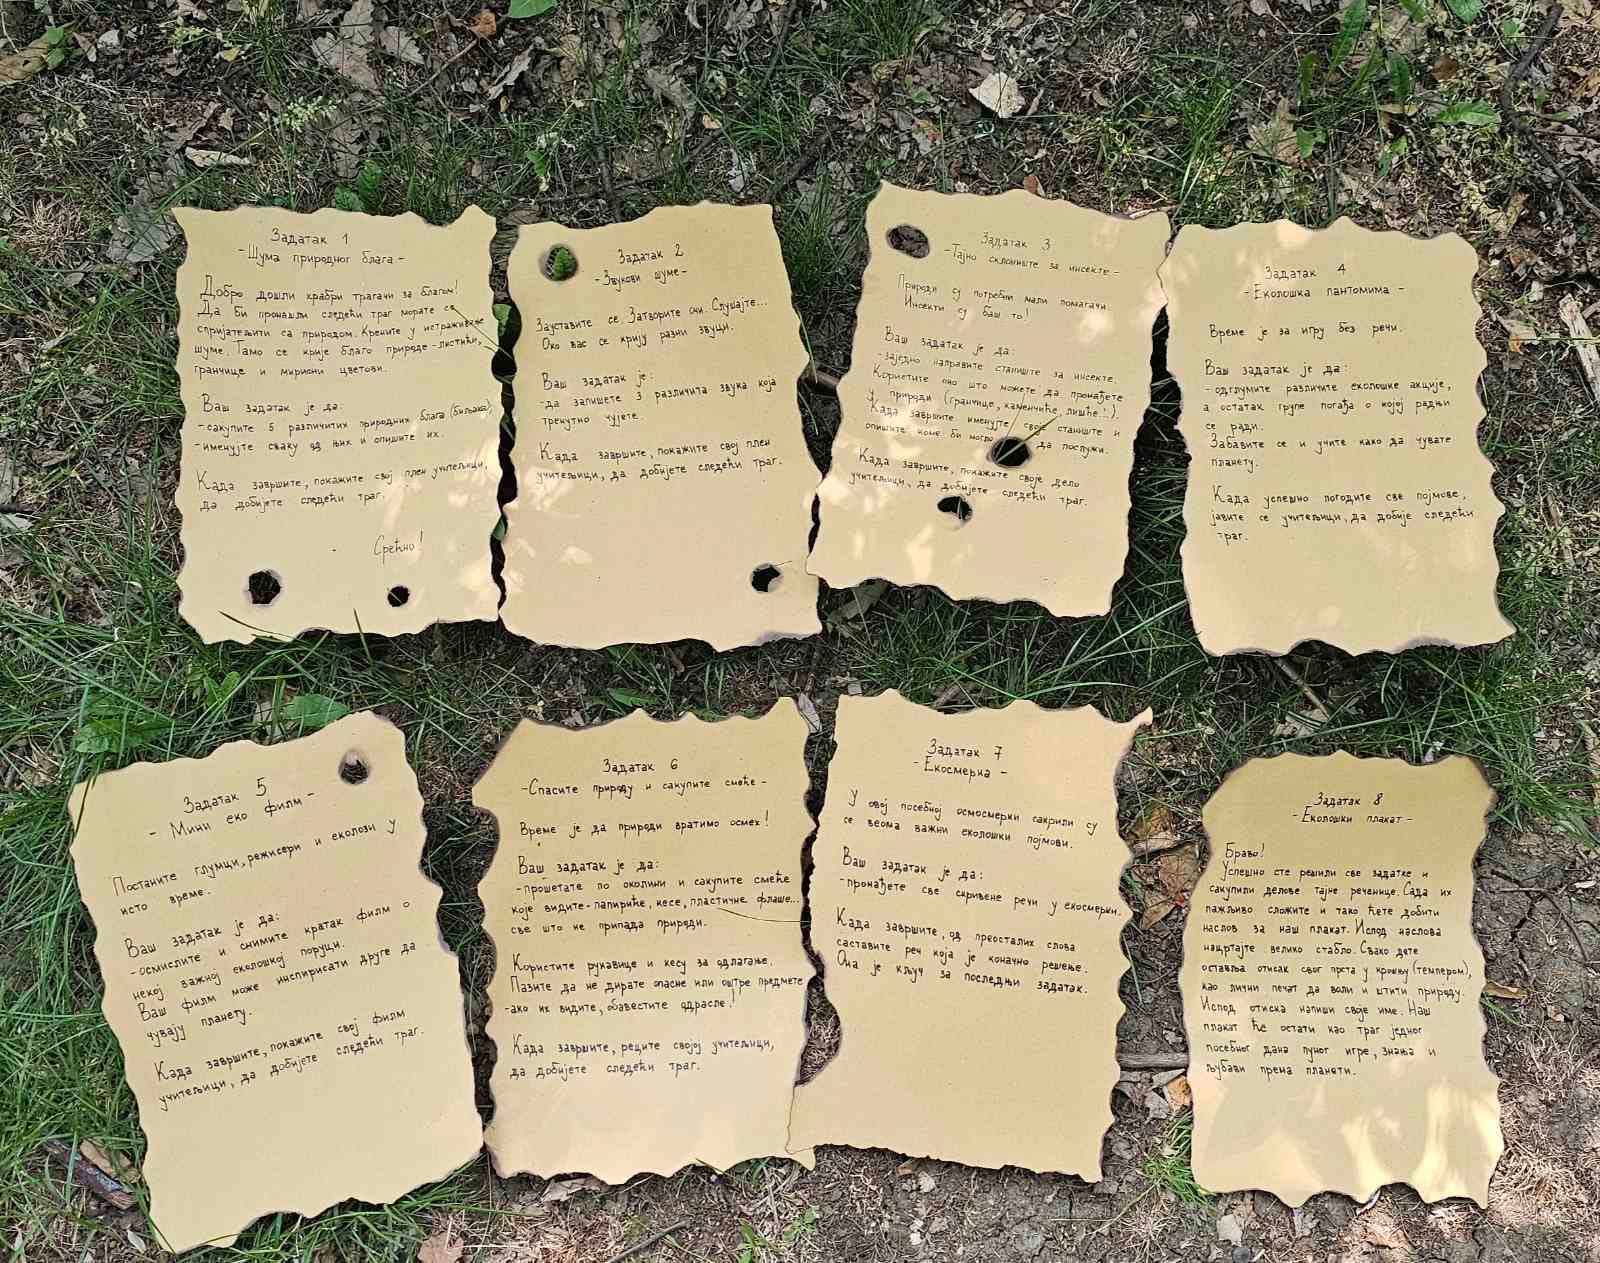 Задатак 1
-Шума природног блага-
Добро дошли храбри трагачи за благом!
Да би пронашли следећи траг морате се
спријатељити са природом. Крените у истраживање
шуме. Тамо се крије благо природе-листићи,
гранчице и мирисни цветови.
Ваш задатак је да:
-сакупите 5 различитих природних блага (биљака);
-именујте сваку од њих и опишите их.
Када завршите, покажите свој плен учитељици,
да добијете следећи траг.
Срећно!
Задатак 2
-Звукови шуме-
Зауставите се. Затворите очи. Слушајте...
Око вас се крију разни звуци.
Ваш задатак је:
-да запишете 3 различита звука која
тренутно чујете.
Када завршите, покажите свој плен
учитељици, да добијете следећи траг.
Задатак 3
-Тајно склониште за инсекте-
Природи су потребни мали помагачи.
Инсекти су баш то!
Ваш задатак је да:
-заједно направите станиште за инсекте.
Користите оно што можете да пронађете
у природи (гранчице, каменчиће, лишће...).
Када завршите именујте своје станиште и
опишите коме би могло да послужи.
Када завршите, покажите своје дело
учитељици, да добијете следећи траг.
Задатак 4
-Еколошка пантомима-
Време је за игру без речи.
Ваш задатак је да:
-одглумите различите еколошке акције,
а остатак групе погађа о којој радњи
се ради.
Забавите се и учите како да чувате
планету.
Када успешно погодите све појмове,
јавите се учитељици, да добије следећи
траг.
Задатак 5
- Мини еко филм -
Постаните глумци, режисери и еколози у
исто време.
Ваш задатак је да:
-осмислите и снимите кратак филм о
некој важној еколошкој поруци.
Ваш филм може инспирисати друге да
чувају планету.
Када завршите, покажите свој филм
учитељици, да добијете следећи траг.
Задатак 6
-Спасите природу и сакупите смеће-
Време је да природи вратимо осмех!
Ваш задатак је да:
-прошетате по околини и сакупите смеће
које видите-папириће, кесе, пластичне флаше...
све што не припада природи.
Користите рукавице и кесу за одлагање.
Пазите да не дирате опасне или оштре предмете
-ако их видите, обавестите одрасле!
Када завршите, реците својој учитељици,
да добијете следећи траг.
Задатак 7
- Екосмерка -
У овој посебној осмосмерки сакрили су
се веома важни еколошки појмови.
Ваш задатак је да:
-пронађете све скривене речи у екосмерки.
Када завршите, од преосталих слова
саставите реч која је коначно решење.
Она је кључ за последњи задатак.
Задатак 8
-Еколошки плакат-
Браво!
Успешно сте решили све задатке и
сакупили делове тајне реченице. Сада их
пажљиво сложите и тако ћете добити
наслов за наш плакат. Испод наслова
нацртајте велико стабло. Свако дете
оставља отисак свог прста у крошњу (темпером),
као лични печат да воли и штити природу.
Испод отиска напиши своје име. Наш
плакат ће остати као траг једног
посебног дана пуног игре, знања и
љубави према планети.